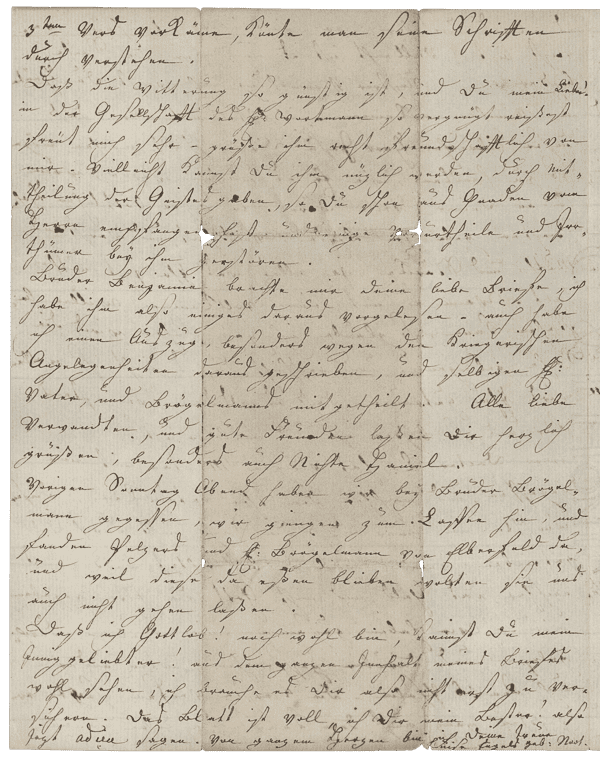 3ten Vers vorkäme, könte man seine Schrifften
durch verstehen.
Daß die Witterung so günstig ist, und Du mein Lieber
in der Gesellschafft des H: Wortmann so vergnügt reisest
freut mich sehr – grüße ihn recht freundschäfftlich von
mir. Vielleicht kanst Du ihm nüzlich werden, durch Mit-
theilung der Geistesgaben, so Du schon aus Gnaden vom
Herrn empfangen hast und einige Vorurtheile und Irr-
thümer bey ihm zerstören.
Bruder Benjamin brachte mir deine liebe Briefe, ich
habe ihm also einiges daraus vorgelesen – auch habe
ich einen Auszug, besonders wegen den Kriegerischen
Angelegenheiten daraus geschrieben, und selbigen H:
Vater und Brögelmanns mitgetheilt. Alle liebe
Verwandten, und gute Freunden laßen Dir herzlich
grüßen, besonders auch Nichte
Vorigen Sonntag Abend haben wir bey Bruder Brögel-
mann gegessen, wir giengen zum Caffee hin, und
fanden Pelzers und H: Brögelmann von Elberfeld da,
und weil diese da eßen blieben wolten sie uns
auch nicht gehen laßen.
Daß ich Gottlob! noch wohl bin kanst Du mein
Innig geliebter! aus dem ganzen Innhalt meines Briefes
wohl sehen, ich brauche es Dir also nicht erst zu ver-
sichern. Das Blatt ist voll, ich Dir mein Bester! also
jezt adieu sagen. Von ganzem Herzen bin ich Deine treue
Luise Engels geb: Noot.